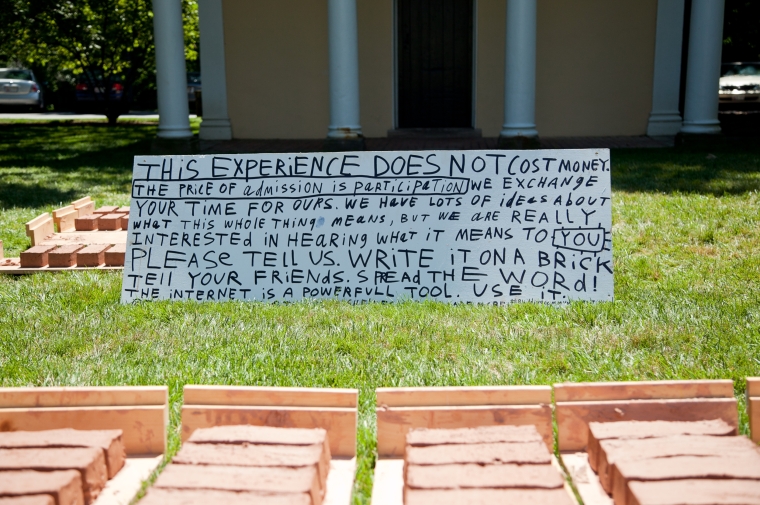 THIS EXPERIENCE DOES NOT COST MONEY.
THE PRICE OF admission is participation WE EXCHANGE
YOUR TIME FOR OURS. WE HAVE LOTS OF ideas ABOUT
WHAT THIS WHOLE THING MEANS, BUT WE ARE REALLY
INTERESTED IN HEARING WHAT IT MEANS TO YOU
PLEASE TELL US. WRITE IT ON A BRICK
TELL YOUR FRIENDS. SPREAD THE WORD!
THE INTERNET IS A POWERFULL TOOL. USE IT.